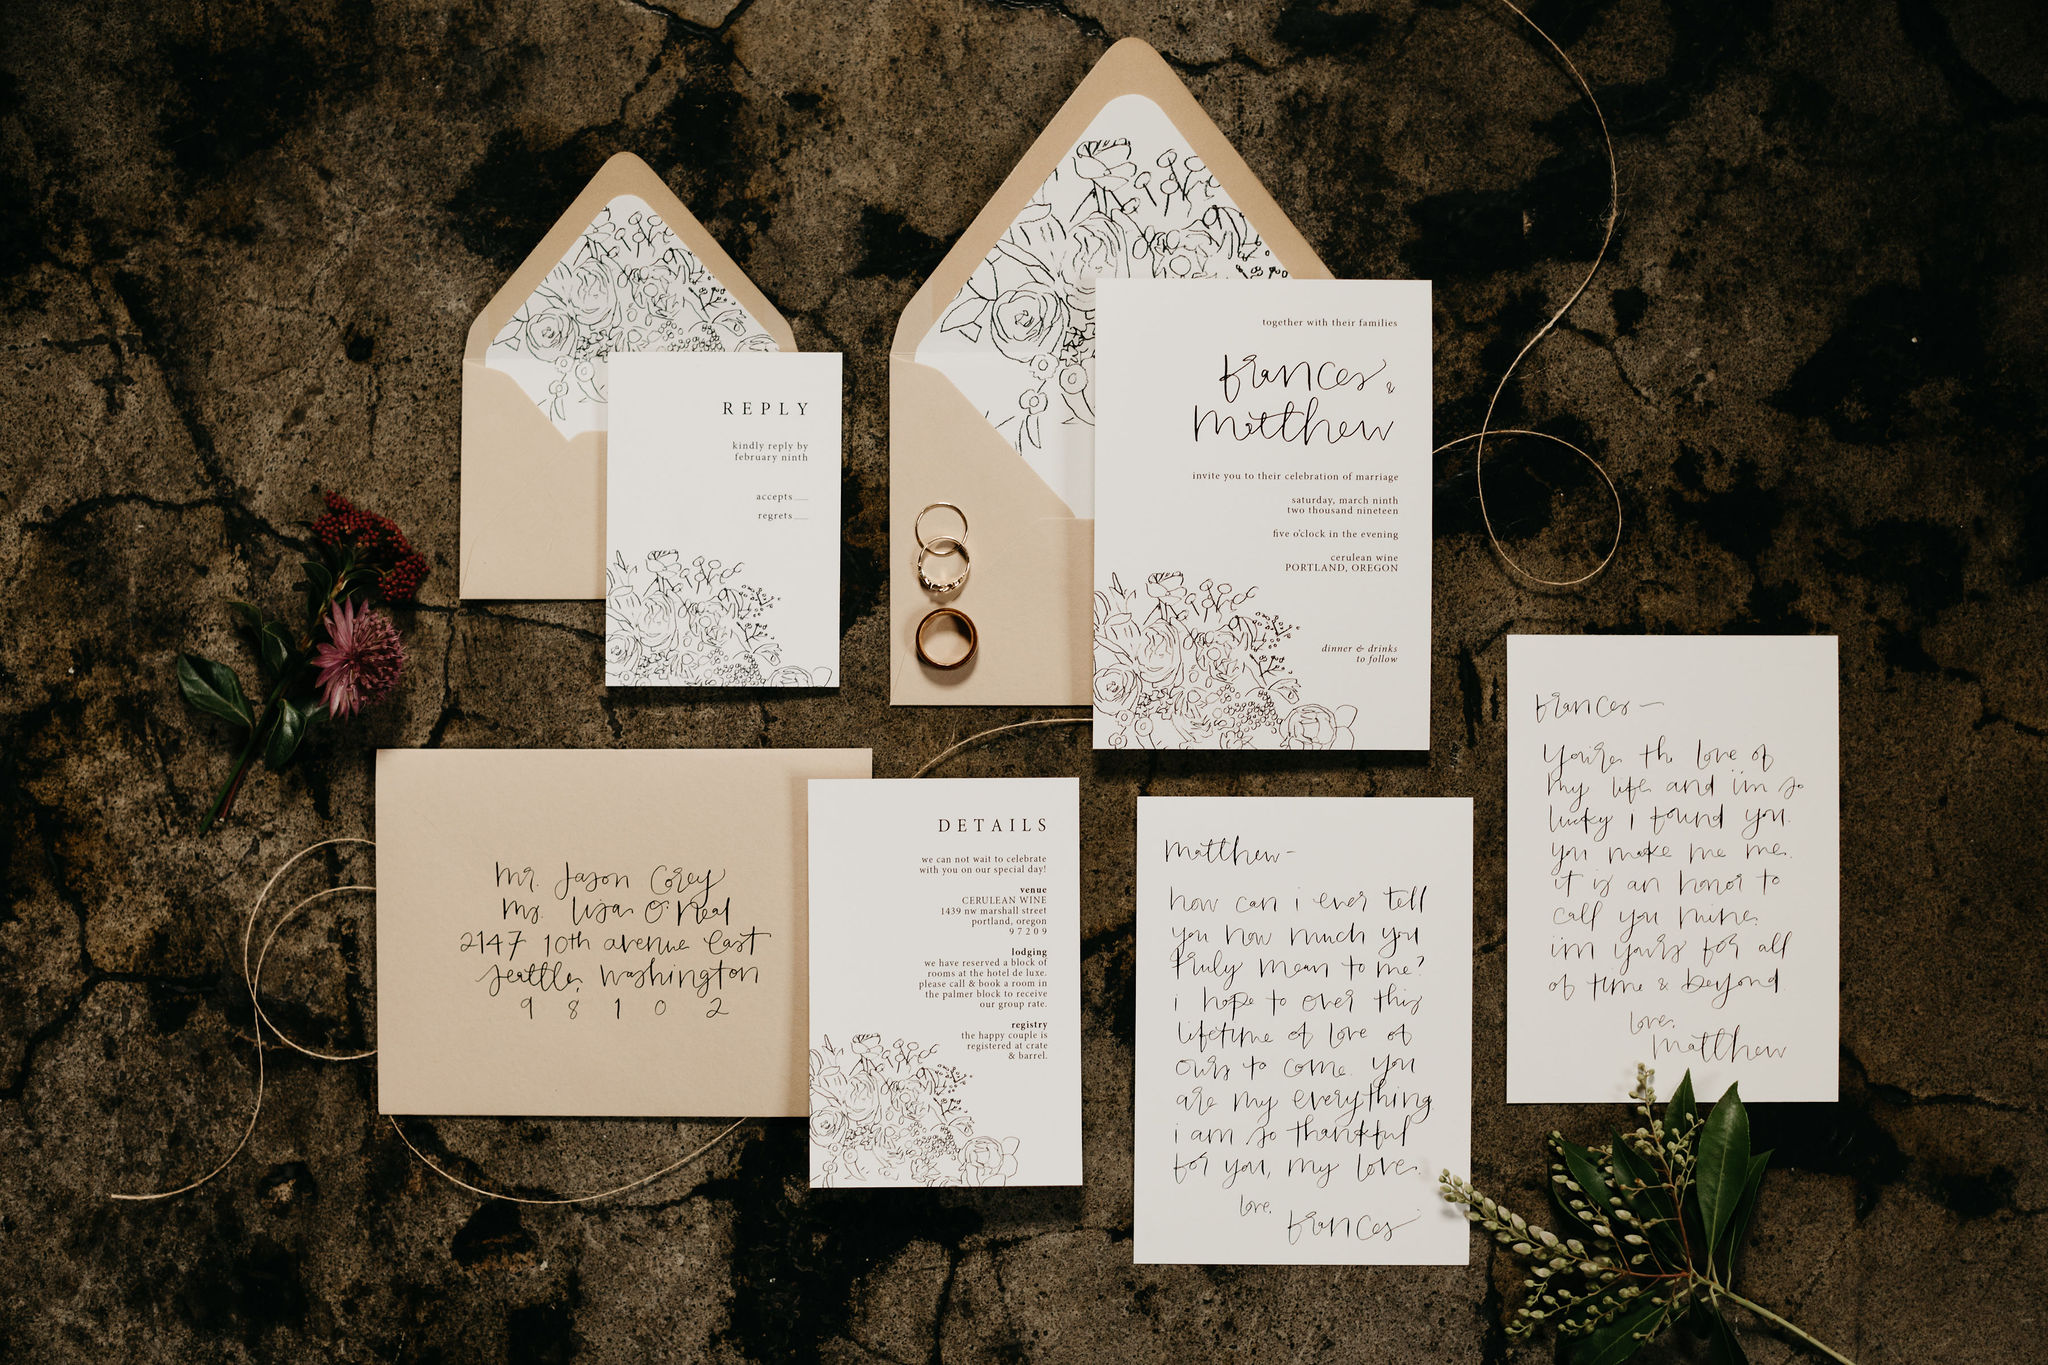 REPLY
kindly reply by
february ninth
accepts__
regrets__
together with their families
frances &
matthew
invite you to their celebration of marriage
saturday, march ninth
two thousand nineteen
five o'clock in the evening
cerulean wine
PORTLAND, OREGON
dinner & drinks
to follow
mr. jason Corey
ms. lisa O'Neal
2147 10th avenue East
seattle, washington
98102
DETAILS
we can not wait to celebrate
with you on our special day!
venue
CERULEAN WINE
1439 nw marshall street
portland, oregon
97209
lodging
we have reserved a block of
rooms at the hotel de luxe.
please call & book a room in
the palmer block to receive
our group rate.
registry
the happy couple is
registered at crate
& barrel.
matthew-
how can i ever tell
you how much you
truly mean to me?
i hope to over this
lifetime of love of
ours to come. you
are my everything.
i am so thankful
for you, my love.
love,
frances
frances-
you're the love of
my life and i'm so
lucky i found you.
you make me me.
it is an honor to
call you mine.
i'm yours for all
of time & beyond.
love,
matthew